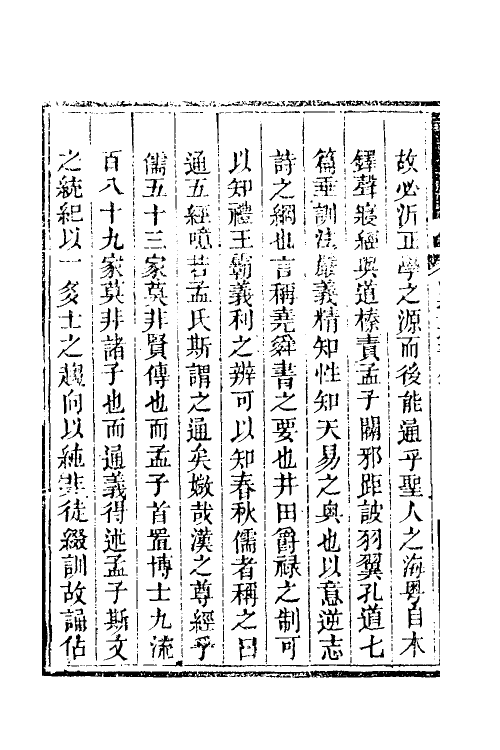 故必沂正學之源而後能通乎聖人之海粤自木
鐸聲寢經與道榛責孟子闢邪距詖羽翼孔道七
篇垂訓法嚴義精知性知天易之奥也以意逆志
詩之綱也言稱堯舜書之要也井田爵禄之制可
以知禮王霸義利之辨可以知春秋儒者稱之曰
通五經噫若孟氏斯謂之通矣媺哉漢之尊經乎
儒五十三家莫非賢傳也而孟子首置博士九流
百八十九家莫非諸子也而通義得述孟子斯文
之統紀以一多士之趨向以純非徒綴訓故誦佔